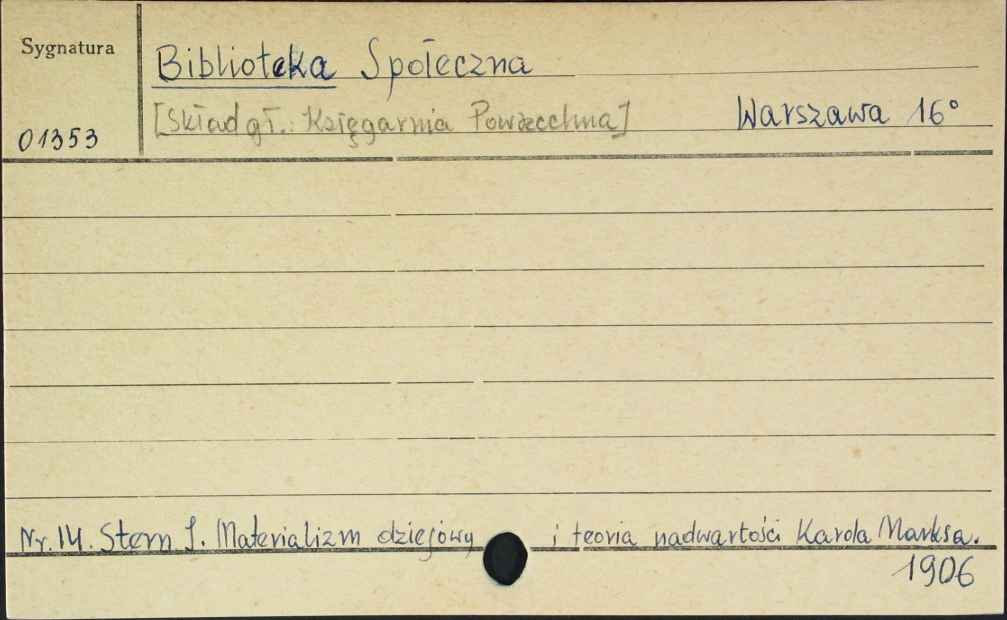 Sygnatura
Biblioteka Społeczna
[Skład gł.: Księgarnia Powszechna] Warszawa 16°
01353
Nr. 14. Stern J. Materializm dziejowy i teoria nadwartości Karola Marksa.
1906